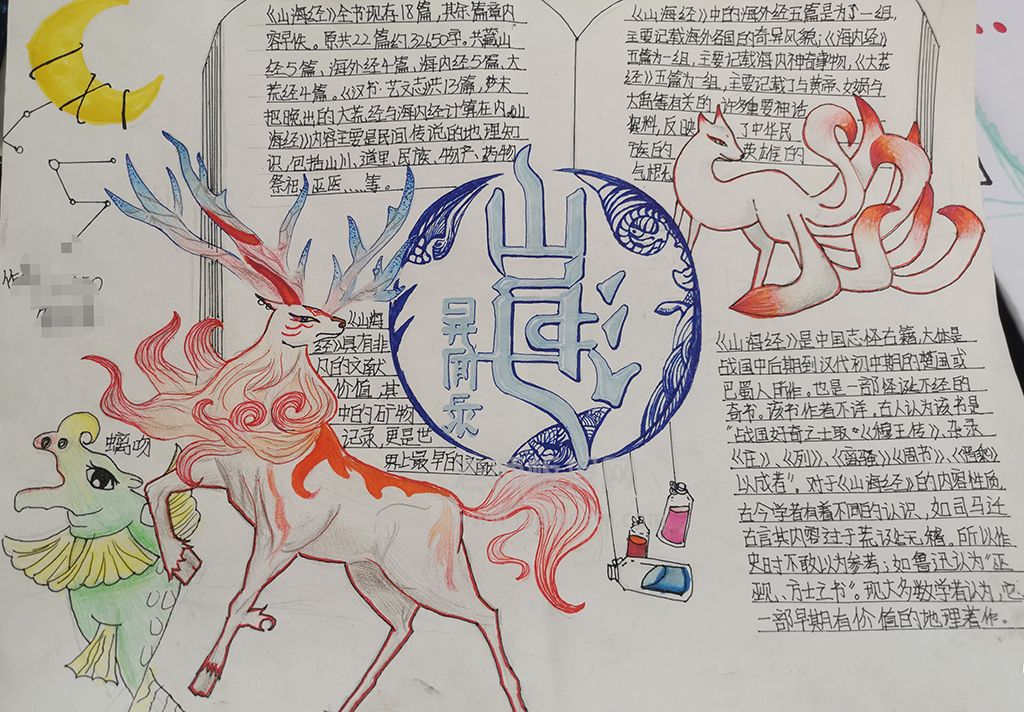 《山海经》全书现存18篇,其余篇章内
容早佚。原共22篇约32650字。共藏山
经5篇、海外经4篇、海内经5篇、大
荒经4篇。《汉书·艺文志》共13篇,
把晚出的大荒经与海内经计算在内。山
海经》内容主要是民间传说的地理知
识,包括山川、道里、民族、物产、药物
祭祀、巫医、、、等。
《山海经》中的海外经五篇是为一组,
主要记载海外各国的奇异风貌;《海内经》
五篇为一组,主要记载海内神奇事物,《大荒
经》五篇为一组,主要记载了与黄帝、女娲与
大禹等有关的 许多重要神话
资料,反映 了中华民
族的 英雄的
气概
山海
异闻录
《山海
经》具有非
凡的文献
价值,其
中的矿物
记录,更是世
界上最早的文献
螭吻
《山海经》是中国志怪古籍,大体是
战国中后期到汉代初中期的楚国或
巴蜀人所作。也是一部怪诞不经的
奇书。该书作者不详,古人认为该书是
"战国好奇之士取《穆王传》,杂录
《庄》、《列》、《离骚》、《周书》、《晋乘》
以成者"。对于《山海经》的内容性质,
古今学者有着不同的认识,如司马迁
言其内容过于荒诞无稽,所以作
史时不敢以为参考;如鲁迅认为"巫
觋、方士之书"。现大多数学者认为,它
一部早期有价值的地理著作。